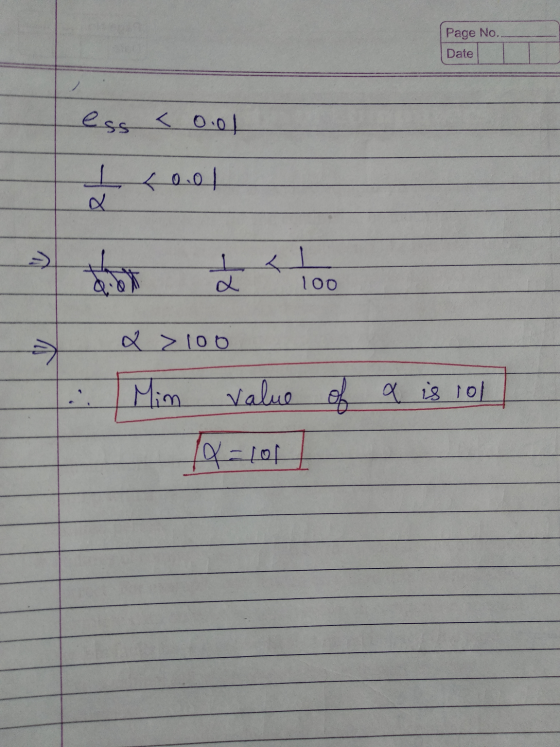 Page No.
Date
ess < 0.01
1/α < 0.01
⇒ 1/α < 1/100
⇒ α > 100
∴ Min value of α is 101
α = 101